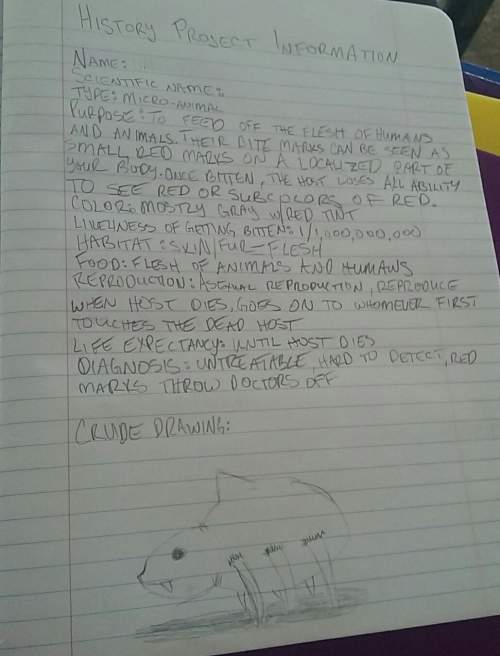 HISTORY PROJECT INFORMATION
NAME:
SCIENTIFIC NAME:
TYPE: MICRO-ANIMAL
PURPOSE: TO FEED OFF THE FLESH OF HUMANS
AND ANIMALS. THEIR BITE MARKS CAN BE SEEN AS
SMALL RED MARKS ON A LOCALIZED PART OF
YOUR BODY. ONCE BITTEN, THE HOST LOSES ALL ABILITY
TO SEE RED OR SUBCOLORS OF RED.
COLOR: MOSTLY GRAY W/RED TINT
LIKELYNESS OF GETING BITTEN: 1/1,000,000,000
HABITAT: SKIN/FUR - FLESH
FOOD: FLESH OF ANIMALS AND HUMANS
REPRODUCTION: ASEXUAL REPRODUCTION, REPRODUCE
WHEN HOST DIES, GOES ON TO WHOMEVER FIRST
TOUCHES THE DEAD HOST
LIFE EXPECTANCY: UNTIL HOST DIES
DIAGNOSIS: UNTREATABLE, HARD TO DETECT, RED
MARKS THROW DOCTORS OFF
CRUDE DRAWING: